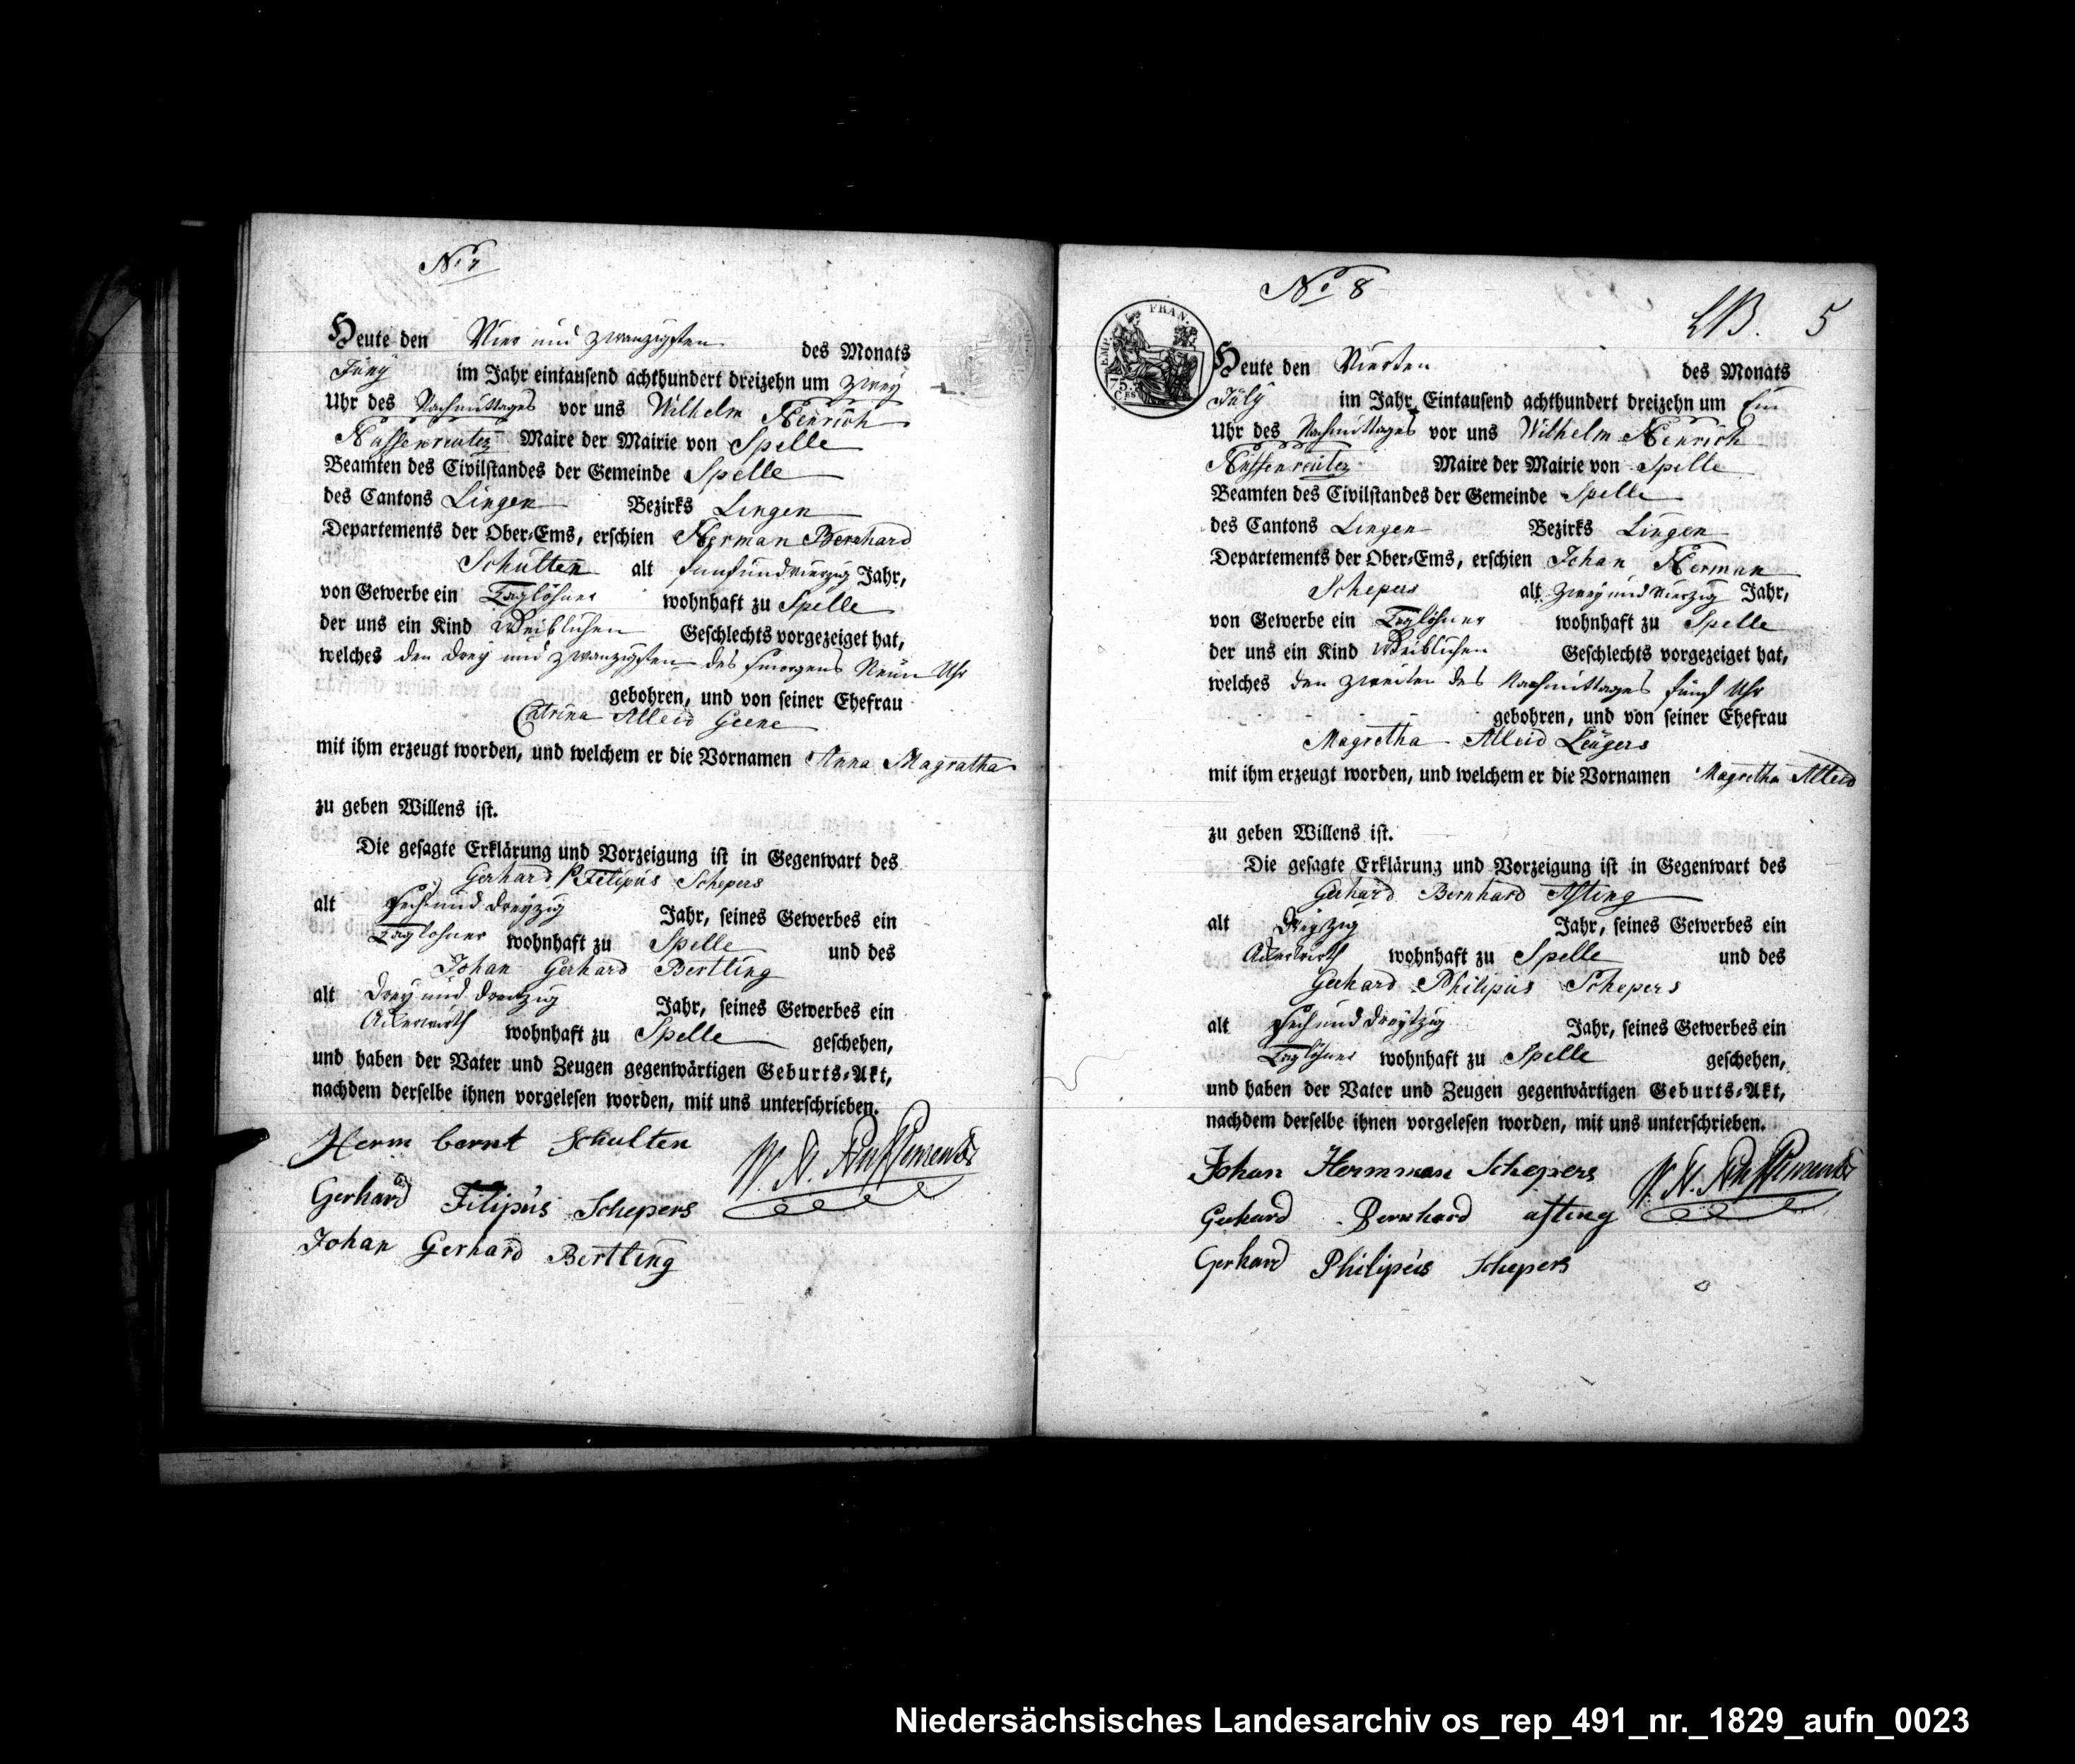 No 7
Heute den Vier und zwanzigsten des Monats
Juny im Jahr eintausend achthundert dreizehn um zwey
Uhr des Nachmittages vor uns Wilhelm Henrich
Maire der Mairie von Spelle
Beamten des Civilstandes der Gemeinde Spelle
des Cantons Lingen Bezirks Lingen
Departements der Ober-Ems, erschien Herman Bernhard
Schulten alt funfundvierzig Jahr,
von Gewerbe ein Taglöhner wohnhaft zu Spelle
der uns ein Kind Weiblichen Geschlechts vorgezeiget hat,
welches den drey und zwanzigsten des morgens Neun Uhr
gebohren, und von seiner Ehefrau
Catrina Alleid Geene
mit ihm erzeugt worden, und welchem er die Vornamen Anna Magratha
zu geben Willens ist.
Die gesagte Erklärung und Vorzeigung ist in Gegenwart des
Gerhard Filipus Schepers
alt sechs und dreyzig Jahr, seines Gewerbes ein
Taglohner wohnhaft zu Spelle und des
Johan Gerhard Bertling
alt drey und dreitzig Jahr, seines Gewerbes ein
Ackerwirth wohnhaft zu Spelle geschehen,
und haben der Vater und Zeugen gegenwärtigen Geburts-Akt,
nachdem derselbe ihnen vorgelesen worden, mit uns unterschrieben.
Herm bernt Schulten
Gerhard Filipus Schepers
Johan Gerhard Bertling
No 8
5
EMP. FRAN.
75. CES
Heute den Vierten des Monats
July im Jahr Eintausend achthundert dreizehn um Ein
Uhr des Nachmittages vor uns Wilhelm Henrich
Maire der Mairie von Spelle
Beamten des Civilstandes der Gemeinde Spelle
des Cantons Lingen Bezirks Lingen
Departements der Ober-Ems, erschien Johan Herman
Schepers alt zwey und vierzig Jahr,
von Gewerbe ein Taglöhner wohnhaft zu Spelle
der uns ein Kind Weiblichen Geschlechts vorgezeiget hat,
welches den zweiten des Nachmittages fünf Uhr
gebohren, und von seiner Ehefrau
Magretha Alleid Leügers
mit ihm erzeugt worden, und welchem er die Vornamen Magretha Alleid
zu geben Willens ist.
Die gesagte Erklärung und Vorzeigung ist in Gegenwart des
Gerhard Bernhard Asting
alt Jahr, seines Gewerbes ein
Ackerwirth wohnhaft zu Spelle und des
Gerhard Philipus Schepers
alt sechs und dreytzig Jahr, seines Gewerbes ein
Taglöhner wohnhaft zu Spelle geschehen,
und haben der Vater und Zeugen gegenwärtigen Geburts-Akt,
nachdem derselbe ihnen vorgelesen worden, mit uns unterschrieben.
Johan Herrman Schepers
Gerhard Bernhard asting
Gerhard Philipus Schepers
Niedersächsisches Landesarchiv os_rep_491_nr._1829_aufn_0023